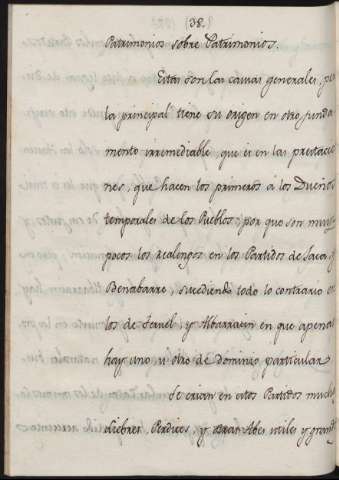 38.
Patrimonios sobre Patrimonios.
Estas son las causas generales, pe
la principal tiene su origen en otro funda
mento irremediable, que es en las prestacio
nes, que hacen los primeros à los Dueños
temporales de los Pueblos; por que son muy
pocos los realengos en los Partidos de Jaca, y
Benabarre, sucediendo todo lo contrario en
los de Teruel, y Albarracin en que apenas
hay uno, u otro de dominio particular
Se crian en estos Partidos muchas
Liebres, Perdices, y otras Abes utiles y grand